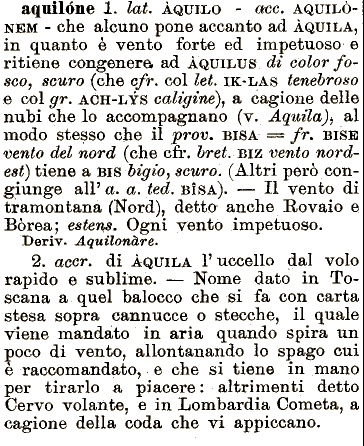 aquilóne 1. lat. ÀQUILO - acc. AQUILÒ-
NEM - che alcuno pone accanto ad ÀQUILA,
in quanto è vento forte ed impetuoso e
ritiene congenere ad ÀQUILUS di color fo-
sco, scuro (che cfr. col let. IK-LAS tenebroso
e col gr. ACH-LỲS caligine), a cagione delle
nubi che lo accompagnano (v. Aquila), al
modo stesso che il prov. BISA = fr. BISE
vento del nord (che cfr. bret. BIZ vento nord-
est) tiene a BIS bigio, scuro. (Altri però con-
giunge all' a. a. ted. BÎSA). — Il vento di
tramontana (Nord), detto anche Rovaio e
Bòrea; estens. Ogni vento impetuoso.
Deriv. Aquilonàre.
2. accr. di ÀQUILA l'uccello dal volo
rapido e sublime. — Nome dato in To-
scana a quel balocco che si fa con carta
stesa sopra cannucce o stecche, il quale
viene mandato in aria quando spira un
poco di vento, allontanando lo spago cui
è raccomandato, e che si tiene in mano
per tirarlo a piacere: altrimenti detto
Cervo volante, e in Lombardia Cometa, a
cagione della coda che vi appiccano.